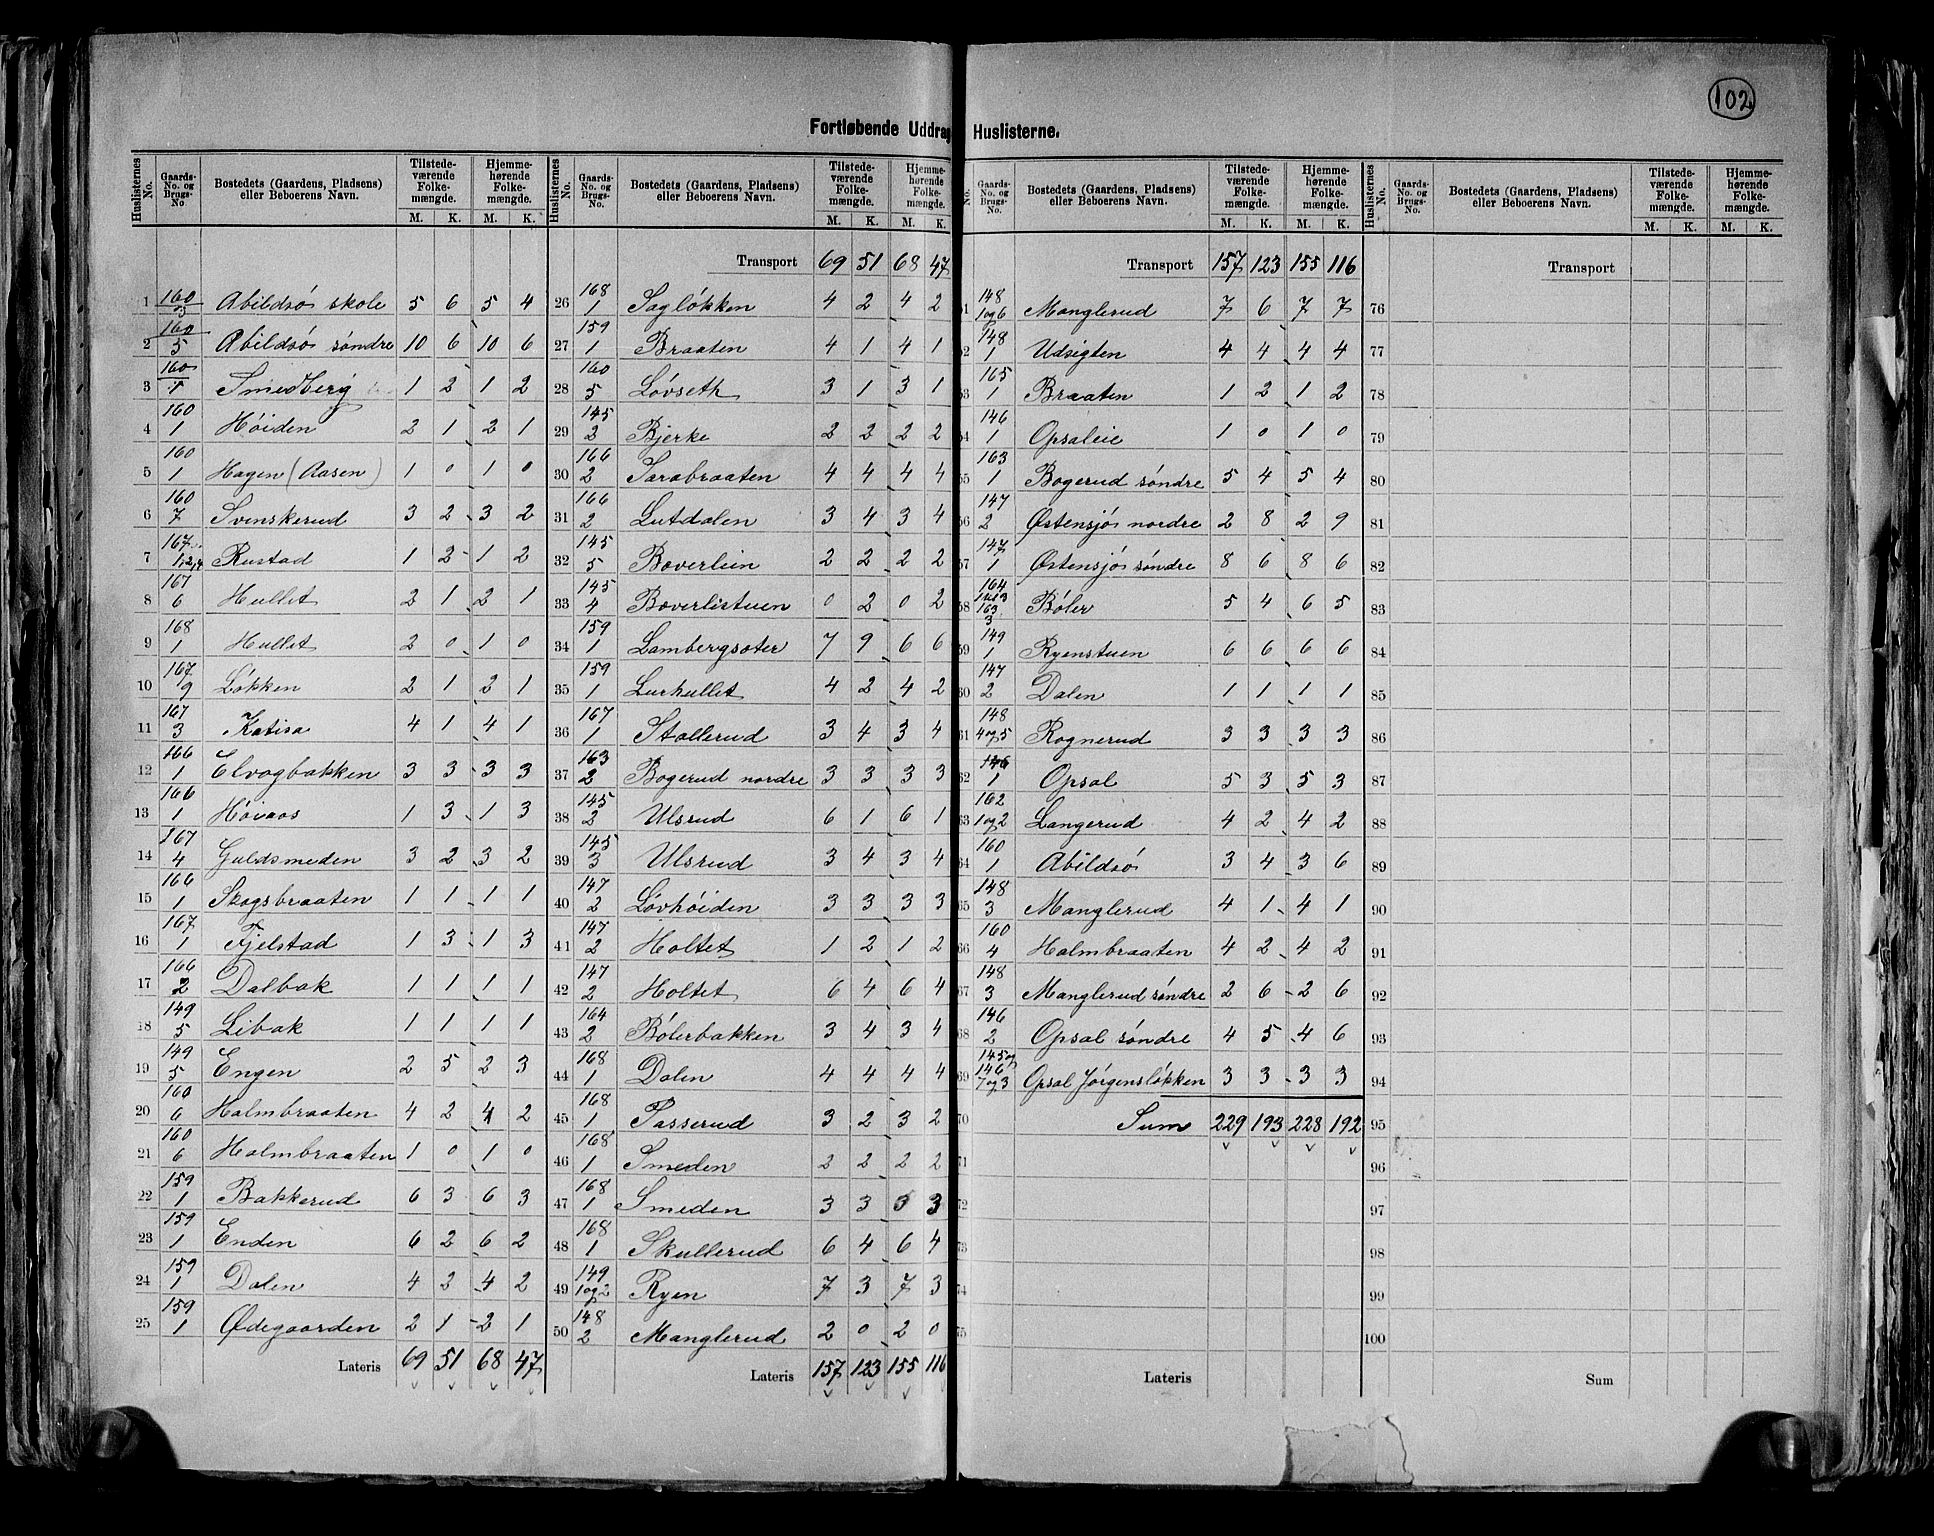 102
Fortløbende Uddrag Huslisterne.
Huslisternes No. | Gaards-No. og Brugs-No. | Bostedets (Gaardens, Pladsens) eller Beboerens Navn. | Tilstedeværende Folkemængde. M. K. | Hjemmehørende Folkemængde. M. K.
1 | 160 | Abildsö skole | 5 | 6 | 5 | 4
2 | 160/5 | Abildsö söndre | 10 | 6 | 10 | 6
3 | 160/1 | Smedberg | 1 | 2 | 1 | 2
4 | 160/1 | Höiden | 2 | 1 | 2 | 1
5 | 160/1 | Hagen (Aasen) | 1 | 0 | 1 | 0
6 | 160/7 | Svenskerud | 3 | 2 | 3 | 2
7 | 167/1,2,4 | Rustad | 1 | 2 | 1 | 2
8 | 167/6 | Hullet | 2 | 1 | 2 | 1
9 | 168/1 | Hullet | 2 | 0 | 1 | 0
10 | 167/9 | Lökken | 2 | 1 | 2 | 1
11 | 167/3 | Katisa | 4 | 1 | 4 | 1
12 | 166/1 | Elvagbakken | 3 | 3 | 3 | 3
13 | 166/1 | Höiaas | 1 | 3 | 1 | 3
14 | 167/4 | Guldsmeden | 3 | 2 | 3 | 2
15 | 166/1 | Skogsbraaten | 1 | 1 | 1 | 1
16 | 167/1 | Fjelstad | 1 | 3 | 1 | 3
17 | 166/2 | Dalbak | 1 | 1 | 1 | 1
18 | 149/5 | Libak | 1 | 1 | 1 | 1
19 | 149/5 | Engen | 2 | 5 | 2 | 3
20 | 160/6 | Halmbraaten | 4 | 2 | 4 | 2
21 | 160/6 | Halmbraaten | 1 | 0 | 1 | 0
22 | 159/1 | Bakkerud | 6 | 3 | 6 | 3
23 | 159/1 | Enden | 6 | 2 | 6 | 2
24 | 159/1 | Dalen | 4 | 2 | 4 | 2
25 | 159/1 | Ødegaarden | 2 | 1 | 2 | 1
Lateris | 69 | 51 | 68 | 47
Huslisternes No. | Gaards-No. og Brugs-No. | Bostedets (Gaardens, Pladsens) eller Beboerens Navn. | Tilstedeværende Folkemængde. M. K. | Hjemmehørende Folkemængde. M. K.
Transport | 69 | 51 | 68 | 47
26 | 168/1 | Saglökken | 4 | 2 | 4 | 2
27 | 159/1 | Braaten | 4 | 1 | 4 | 1
28 | 160/5 | Lövseth | 3 | 1 | 3 | 1
29 | 145/2 | Bjerke | 2 | 2 | 2 | 2
30 | 166/2 | Sarabraaten | 4 | 4 | 4 | 4
31 | 166/2 | Lutdalen | 3 | 4 | 3 | 4
32 | 145/5 | Boverlein | 2 | 2 | 2 | 2
33 | 145/4 | Boverlistuen | 0 | 2 | 0 | 2
34 | 159/1 | Lambergsæter | 7 | 9 | 6 | 6
35 | 159/1 | Lurhullet | 4 | 2 | 4 | 2
36 | 167/1 | Stallerud | 3 | 4 | 3 | 4
37 | 163/2 | Bogerud nordre | 3 | 3 | 3 | 3
38 | 145/2 | Ulsrud | 6 | 1 | 6 | 1
39 | 145/3 | Ulsrud | 3 | 4 | 3 | 4
40 | 147/2 | Lövhöiden | 3 | 3 | 3 | 3
41 | 147/2 | Holtet | 1 | 2 | 1 | 2
42 | 147/2 | Holtet | 6 | 4 | 6 | 4
43 | 164/2 | Bölerbakken | 3 | 4 | 3 | 4
44 | 168/1 | Dalen | 4 | 4 | 4 | 4
45 | 168/1 | Passerud | 3 | 2 | 3 | 2
46 | 168/1 | Smeden | 2 | 2 | 2 | 2
47 | 168/1 | Smeden | 3 | 3 | 3 | 3
48 | 168/1 | Skullerud | 6 | 4 | 6 | 4
49 | 149/1og2 | Ryen | 7 | 3 | 7 | 3
50 | 148/2 | Manglerud | 2 | 0 | 2 | 0
Lateris | 157 | 123 | 155 | 116
No. | Gaards-No. og Brugs-No. | Bostedets (Gaardens, Pladsens) eller Beboerens Navn. | Tilstedeværende Folkemængde. M. K. | Hjemmehørende Folkemængde. M. K.
Transport | 157 | 123 | 155 | 116
51 | 148/1og6 | Manglerud | 7 | 6 | 7 | 7
52 | 148/1 | Udsigten | 4 | 4 | 4 | 4
53 | 165/1 | Braaten | 1 | 2 | 1 | 2
54 | 146/1 | Opsaleie | 1 | 0 | 1 | 0
55 | 163/1 | Bogerud söndre | 5 | 4 | 5 | 4
56 | 147/2 | Østensjö nordre | 2 | 8 | 2 | 9
57 | 147/1 | Østensjö söndre | 8 | 6 | 8 | 6
58 | 164 163/3 | Böler | 5 | 4 | 6 | 5
59 | 149/1 | Ryenstuen | 6 | 6 | 6 | 6
60 | 147/2 | Dalen | 1 | 1 | 1 | 1
61 | 148/4og5 | Rognerud | 3 | 3 | 3 | 3
62 | 146/1 | Opsal | 5 | 3 | 5 | 3
63 | 162/1og2 | Langerud | 4 | 2 | 4 | 2
64 | 160/1 | Abildsö | 3 | 4 | 3 | 6
65 | 148/3 | Manglerud | 4 | 1 | 4 | 1
66 | 160/4 | Halmbraaten | 4 | 2 | 4 | 2
67 | 148/3 | Manglerud söndre | 2 | 6 | 2 | 6
68 | 146/2 | Opsal söndre | 4 | 5 | 4 | 6
69 | 145og 146/7og3 | Opsal Jörgenslökken | 3 | 3 | 3 | 3
70 | Sum | 229 | 193 | 228 | 192
71
72
73
74
75
Lateris
Huslisternes No. | Gaards-No. og Brugs-No. | Bostedets (Gaardens, Pladsens) eller Beboerens Navn. | Tilstedeværende Folkemængde. M. K. | Hjemmehørende Folkemængde. M. K.
Transport
76
77
78
79
80
81
82
83
84
85
86
87
88
89
90
91
92
93
94
95
96
97
98
99
100
Sum